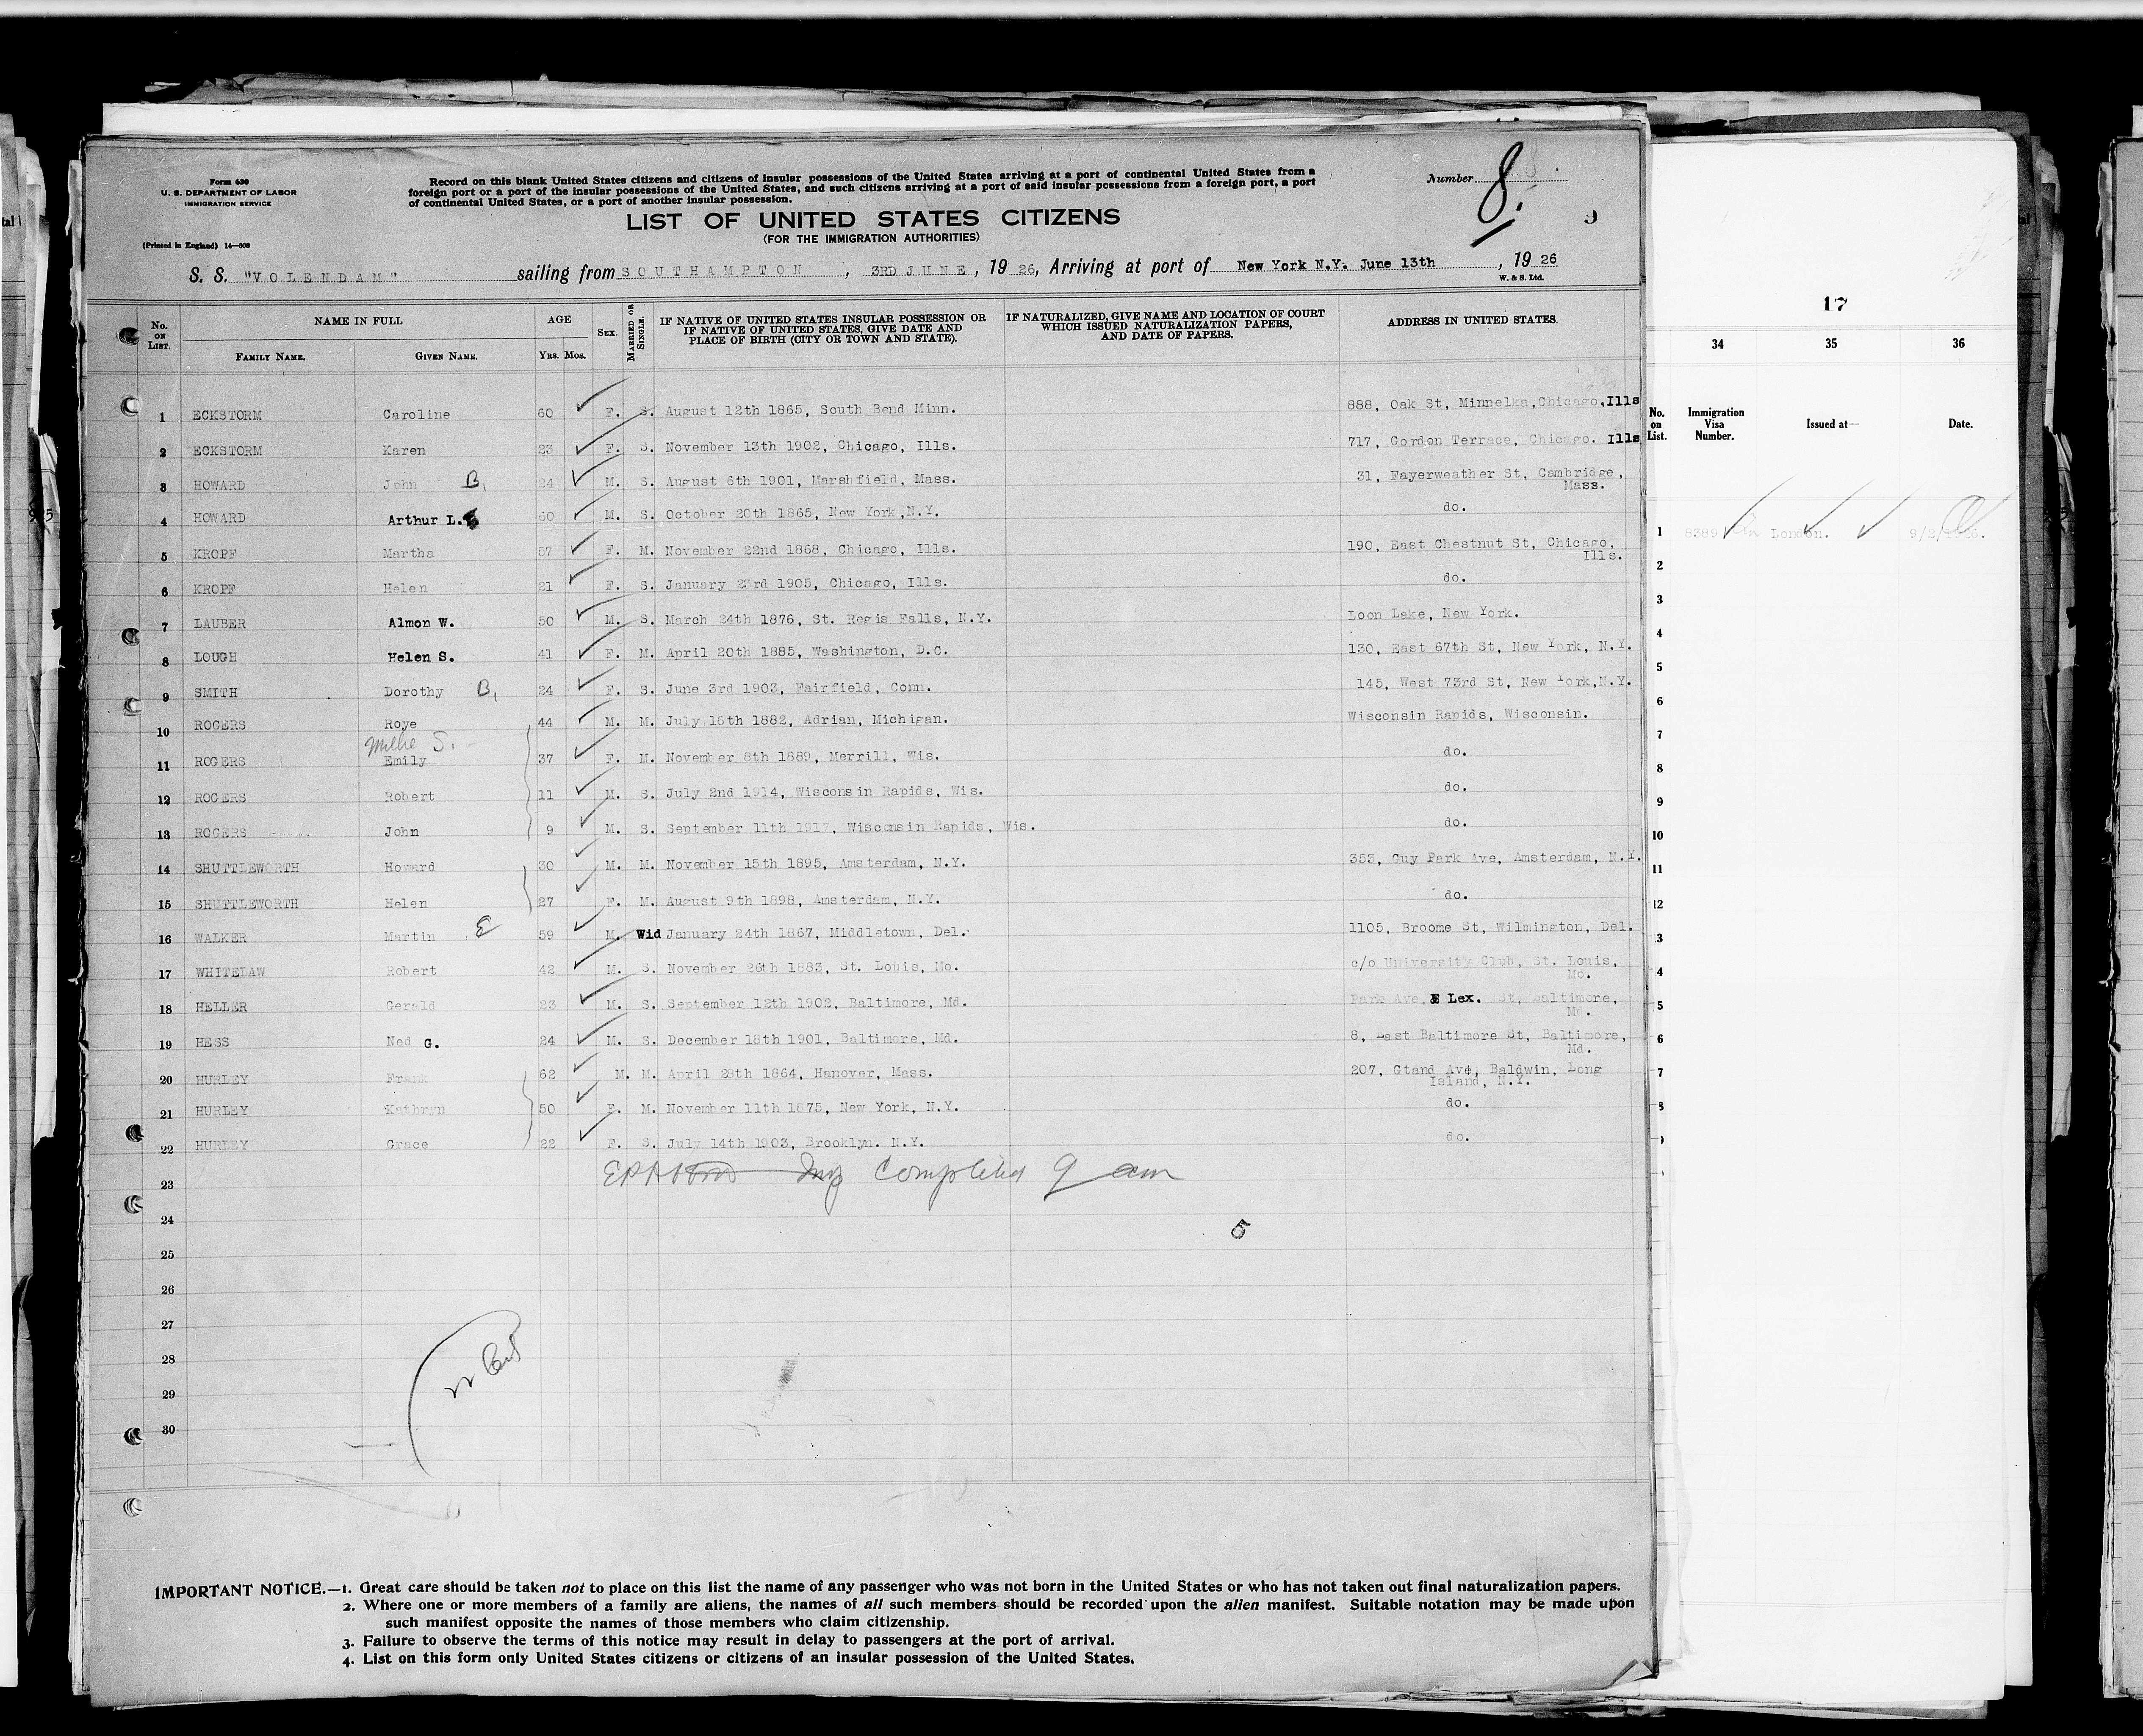 Form 630
U. S. DEPARTMENT OF LABOR
IMMIGRATION SERVICE
(Printed in England) 14—608
Record on this blank United States citizens and citizens of insular possessions of the United States arriving at a port of continental United States from a
foreign port or a port of the insular possessions of the United States, and such citizens arriving at a port of said insular possessions from a foreign port, a port
of continental United States, or a port of another insular possession.
Number 8.
9
LIST OF UNITED STATES CITIZENS
(FOR THE IMMIGRATION AUTHORITIES)
S. S. "VOLENDAM" sailing from SOUTHAMPTON, 3RD JUNE, 1926, Arriving at port of New York N.Y. June 13th, 1926
W. & S. Ltd.
No. ON LIST. NAME IN FULL AGE SEX. MARRIED OR SINGLE. IF NATIVE OF UNITED STATES INSULAR POSSESSION OR IF NATIVE OF UNITED STATES, GIVE DATE AND PLACE OF BIRTH (CITY OR TOWN AND STATE). IF NATURALIZED, GIVE NAME AND LOCATION OF COURT WHICH ISSUED NATURALIZATION PAPERS, AND DATE OF PAPERS. ADDRESS IN UNITED STATES.
FAMILY NAME. GIVEN NAME. YRS. MOS.
1 ECKSTORM Caroline 60 F. S. August 12th 1865, South Bend Minn. 888, Oak St, Minnelka, Chicago, Ills
2 ECKSTORM Karen 23 F. S. November 13th 1902, Chicago, Ills. 717, Gordon Terrace, Chicago. Ills
3 HOWARD John B. 24 M. S. August 6th 1901, Marshfield, Mass. 31, Fayerweather St, Cambridge, Mass.
4 HOWARD Arthur L. 60 M. S. October 20th 1865, New York, N.Y. do.
5 KROPF Martha 57 F. M. November 22nd 1868, Chicago, Ills. 190, East Chestnut St, Chicago, Ills.
6 KROPF Helen 21 F. S. January 23rd 1905, Chicago, Ills. do.
7 LAUBER Almon W. 50 M. S. March 24th 1876, St. Regis Falls, N.Y. Loon Lake, New York.
8 LOUGH Helen S. 41 F. M. April 20th 1885, Washington, D.C. 130, East 67th St, New York, N.Y.
9 SMITH Dorothy B. 24 F. S. June 3rd 1903, Fairfield, Conn. 145, West 73rd St, New York, N.Y.
10 ROGERS Roye 44 M. M. July 16th 1882, Adrian, Michigan. Wisconsin Rapids, Wisconsin.
Millie S.
11 ROGERS Emily 37 F. M. November 8th 1889, Merrill, Wis. do.
12 ROGERS Robert 11 M. S. July 2nd 1914, Wisconsin Rapids, Wis. do.
13 ROGERS John 9 M. S. September 11th 1917, Wisconsin Rapids, Wis. do.
14 SHUTTLEWORTH Howard 30 M. M. November 15th 1895, Amsterdam, N.Y. 353, Guy Park Ave, Amsterdam, N.Y.
15 SHUTTLEWORTH Helen 27 F. M. August 9th 1898, Amsterdam, N.Y. do.
16 WALKER Martin E 59 M. Wid January 24th 1867, Middletown, Del. 1105, Broome St, Wilmington, Del.
17 WHITELAW Robert 42 M. S. November 26th 1883, St. Louis, Mo. c/o University Club, St. Louis, Mo.
18 HELLER Gerald 23 M. S. September 12th 1902, Baltimore, Md. Park Ave, & Lex. St, Baltimore, Md.
19 HESS Ned G. 24 M. S. December 18th 1901, Baltimore, Md. 8, East Baltimore St, Baltimore, Md.
20 HURLEY Frank 62 M. M. April 28th 1864, Hanover, Mass. 207, Gtand Ave, Baldwin, Long Island, N.Y.
21 HURLEY Kathryn 50 F. M. November 11th 1875, New York, N.Y. do.
22 HURLEY Grace 22 F. S. July 14th 1903, Brooklyn. N.Y. do.
23 Completed 9 am
24
5
25
26
27
28
29
30
IMPORTANT NOTICE.—1. Great care should be taken not to place on this list the name of any passenger who was not born in the United States or who has not taken out final naturalization papers.
2. Where one or more members of a family are aliens, the names of all such members should be recorded upon the alien manifest. Suitable notation may be made upon
such manifest opposite the names of those members who claim citizenship.
3. Failure to observe the terms of this notice may result in delay to passengers at the port of arrival.
4. List on this form only United States citizens or citizens of an insular possession of the United States.
17
34 35 36
No. on List. Immigration Visa Number. Issued at— Date.
1 8389 London. 9/2/1926.
2
3
4
5
6
7
8
9
10
11
12
13
4
5
6
7
8
9